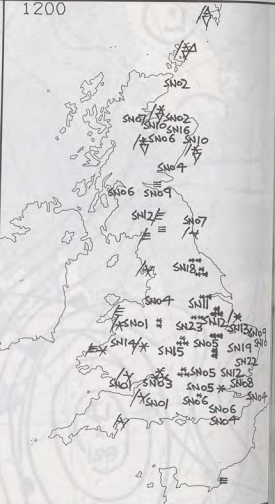 1200
SN02
SN07 SN02
SN10
SN16
SN06 SN10
SN04
SN06 SN09
SN12
SN07
SN18
SN04 SN11
SN01 SN23 SN12 SN13 SN09
SN10
SN14 SN15 SN05 SN19
SN22
SN01 SN03 SN05 SN12
SN05 SN08
SN01 SN06 SN04
SN06
SN04